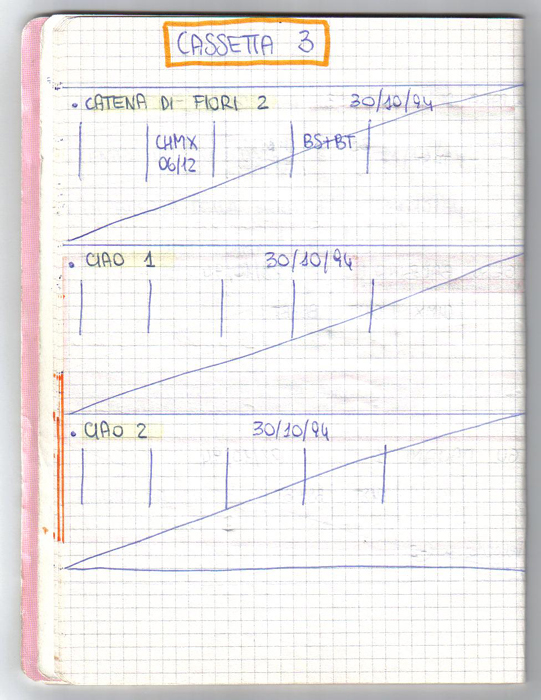 CASSETTA 3
• CATENA DI FIORI 2 30/10/94
CHMX BS+BT
06/12
• CIAO 1 30/10/94
• CIAO 2 30/10/94